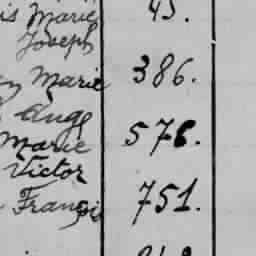 is Marie 45.
Joseph
Marie 386.
Ange
Marie 576.
Victor
François 751.